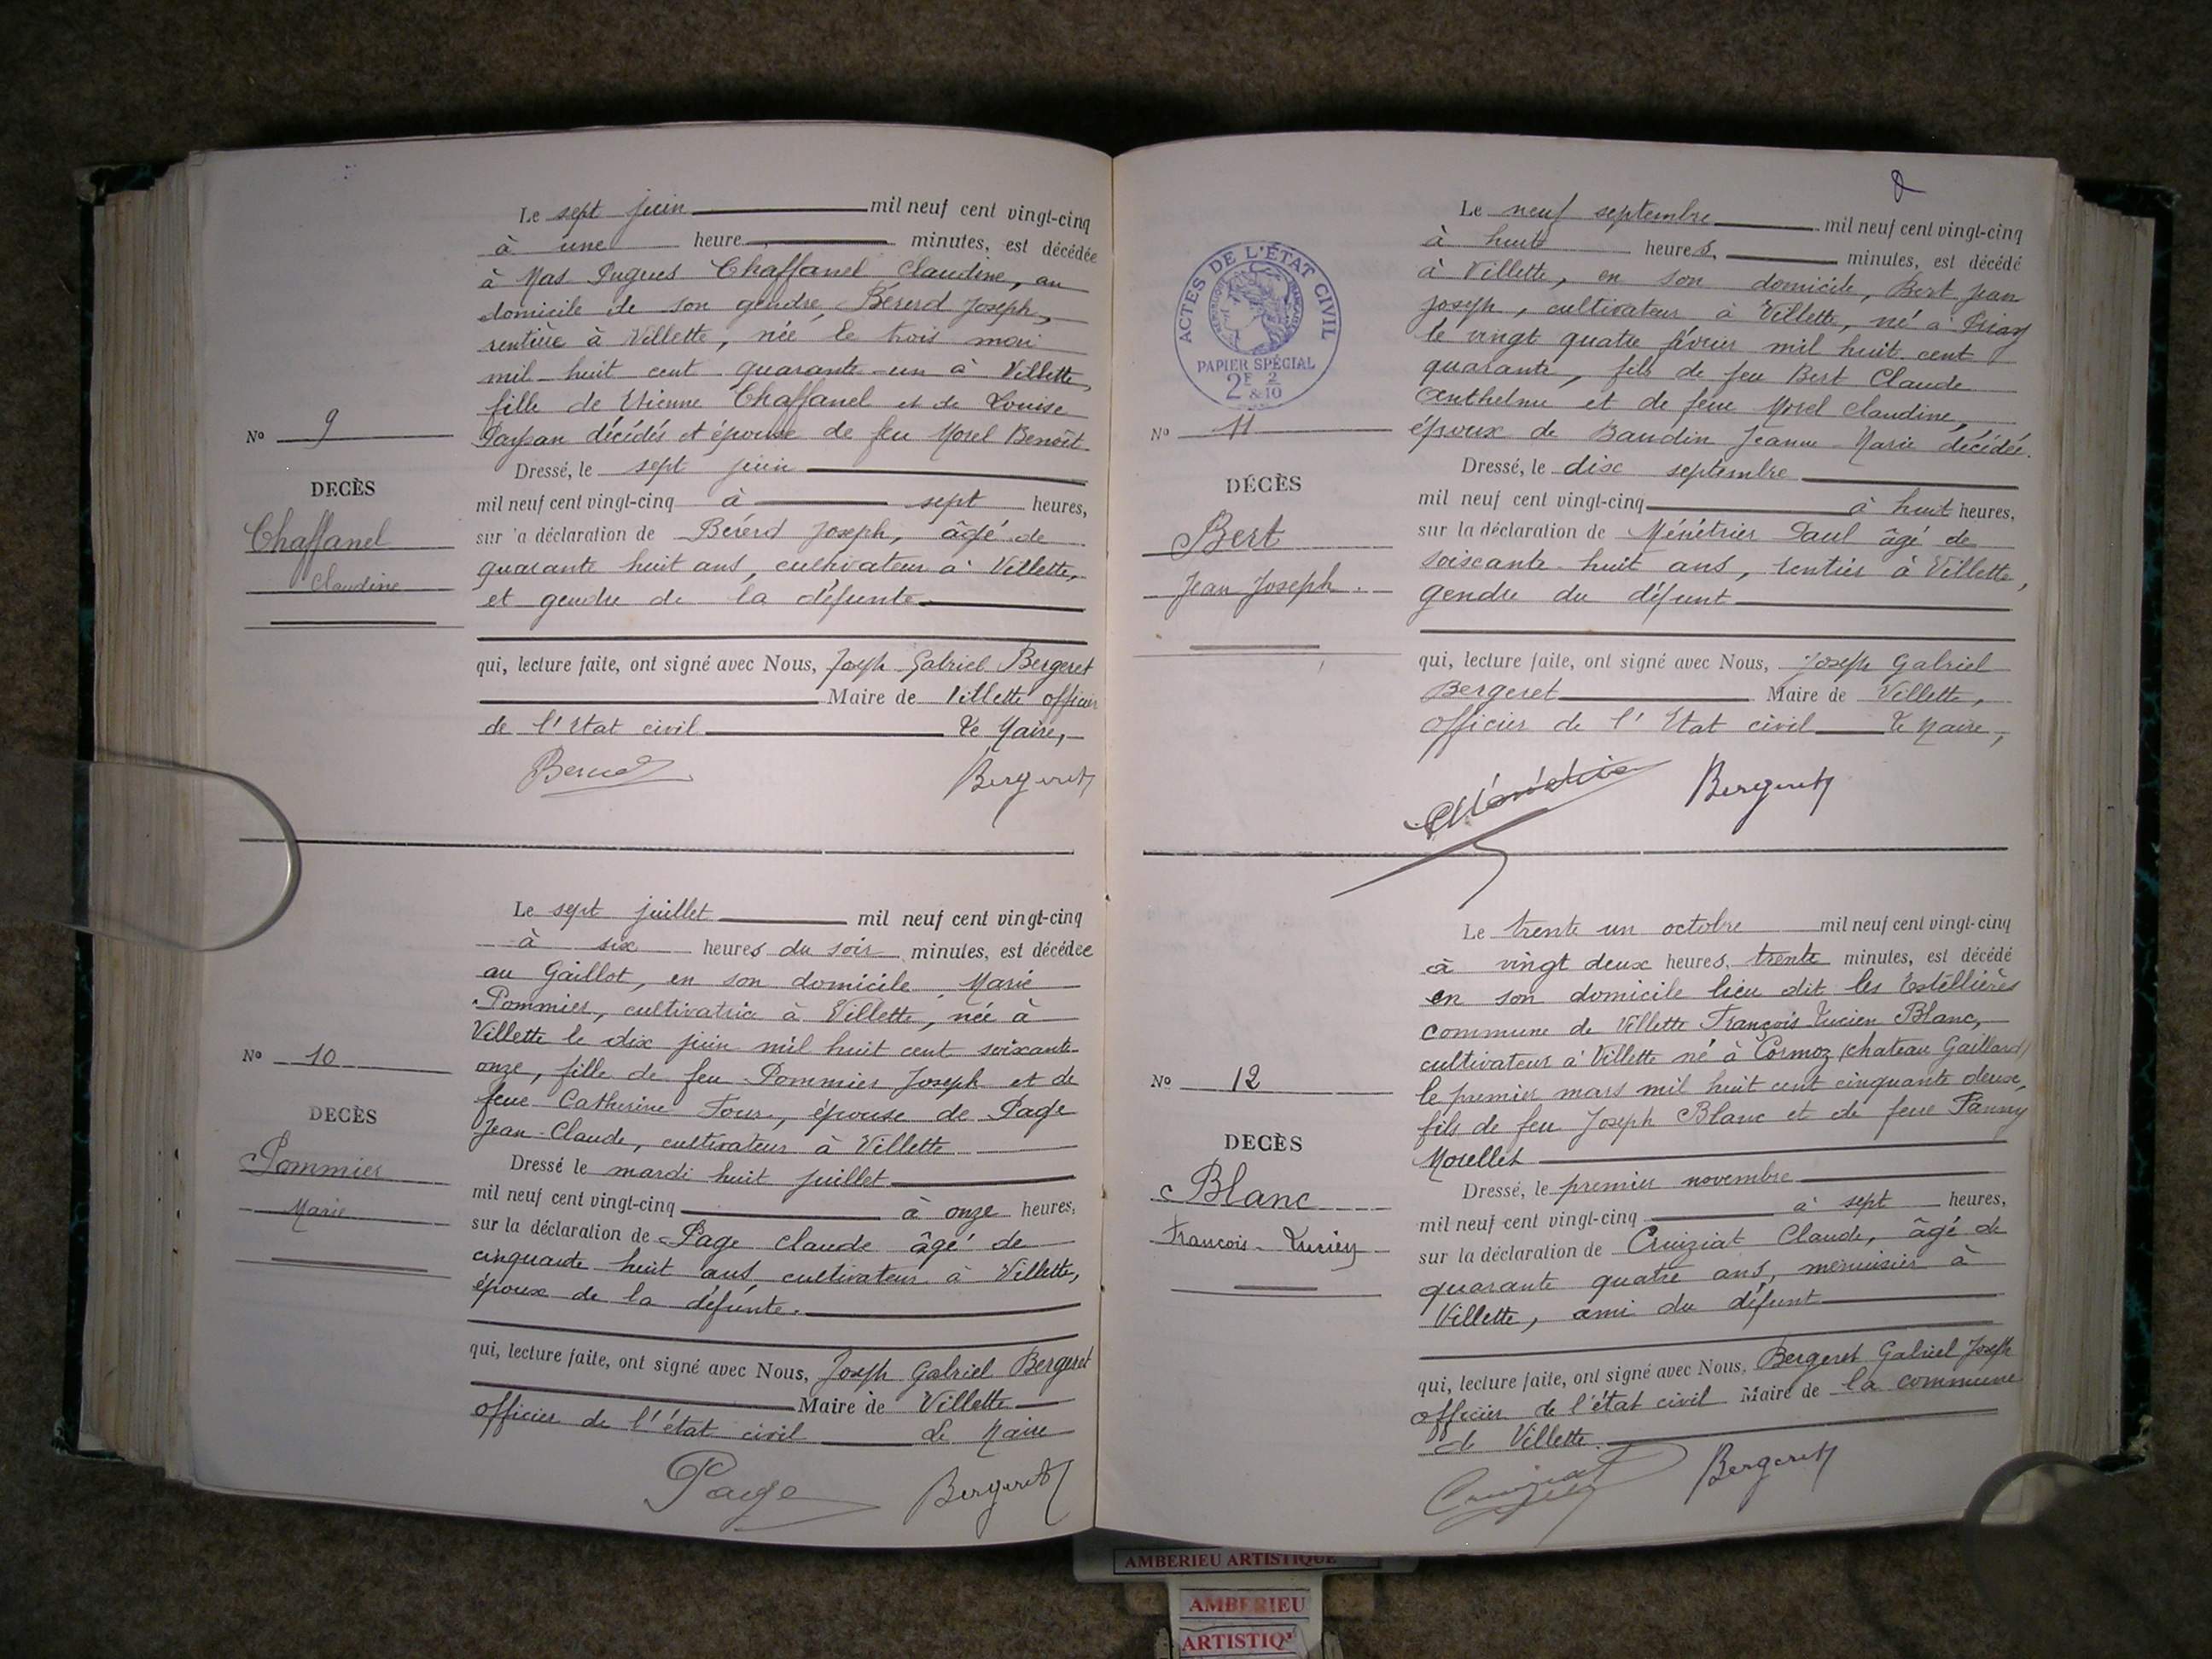 Le sept juin mil neuf cent vingt-cinq
à une heure minutes, est décédée
à Mas Pugues Chaffanel Claudine, au
domicile de son gendre, Bérerd Joseph,
rentière à Villette, née le trois mai
mil huit cent quarante-un à Villette,
fille de Etienne Chaffanel et de Louise
Paysan décédés et épouse de feu Morel Benoît
Nº 9
Dressé, le sept juin
DECÈS
mil neuf cent vingt-cinq à sept heures,
Chaffanel
sur a déclaration de Bérerd Joseph, âgé de
quarante huit ans, cultivateur à Villette,
Claudine
et gendre de la défunte
qui, lecture faite, ont signé avec Nous, Joseph Gabriel Bergeret
Maire de Villette officier
de l'Etat civil Le Maire,
Bergeret
Le sept juillet mil neuf cent vingt-cinq
à six heures du soir minutes, est décédée
au Gaillot, en son domicile, Marie
Pommier, cultivatrice à Villette, née à
Villette le dix juin mil huit cent soixante
Nº 10
onze, fille de feu Pommier Joseph et de
feue Catherine Four, épouse de Page
DECÈS
Jean-Claude, cultivateur à Villette
Pommier
Dressé le mardi huit juillet
Marie
mil neuf cent vingt-cinq à onze heures,
sur la déclaration de Page Claude âgé de
cinquante huit ans cultivateur à Villette,
époux de la défunte.
qui, lecture faite, ont signé avec Nous, Joseph Gabriel Bergeret
Maire de Villette
officier de l'état civil Le Maire
Page Bergeret
8
ACTES DE L'ÉTAT CIVIL
RÉPUBLIQUE FRANÇAISE
PAPIER SPÉCIAL
2F 2
&10
Le neuf septembre mil neuf cent vingt-cinq
à huit heures, minutes, est décédé
à Villette, en son domicile, Bert Jean
Joseph, cultivateur à Villette, né à Priay
le vingt quatre février mil huit cent
quarante, fils de feu Bert Claude
Anthelme et de feue Morel Claudine,
Nº 11
époux de Baudin Jeanne-Marie décédée.
Dressé, le dix septembre
DÉCÈS
mil neuf cent vingt-cinq à huit heures,
Bert
sur la déclaration de Ménétrier Paul âgé de
soixante huit ans, rentier à Villette,
Jean Joseph.
gendre du défunt
qui, lecture faite, ont signé avec Nous, Joseph Gabriel
Bergeret Maire de Villette,
officier de l'Etat civil Le Maire,
Ménétrier Bergeret
Le trente un octobre mil neuf cent vingt-cinq
à vingt deux heures, trente minutes, est décédé
en son domicile lieu dit les Estellières
commune de Villette François Lucien Blanc,
cultivateur à Villette né à Cormoz (chateau Gaillard)
Nº 12
le premier mars mil huit cent cinquante deux,
fils de feu Joseph Blanc et de feue Fanny
DECÈS
Morellet
Blanc
Dressé, le premier novembre
mil neuf cent vingt-cinq à sept heures,
François-Lucien
sur la déclaration de Cruiziat Claude, âgé de
quarante quatre ans, menuisier à
Villette, ami du défunt
qui, lecture faite, ont signé avec Nous, Bergeret Gabriel Joseph
officier de l'état civil Maire de la commune
de Villette.
Cruiziat Bergeret
AMBERIEU ARTISTIQUE
AMBERIEU
ARTISTIQ